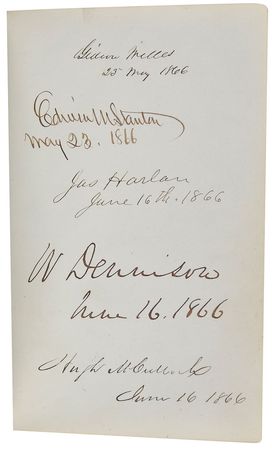 Gideon Welles
25 May 1866
Edwin M Stanton
May 23. 1866
Jas Harlan
June 16th. 1866
W Dennison
June 16. 1866
Hugh McCulloch
June 16 1866